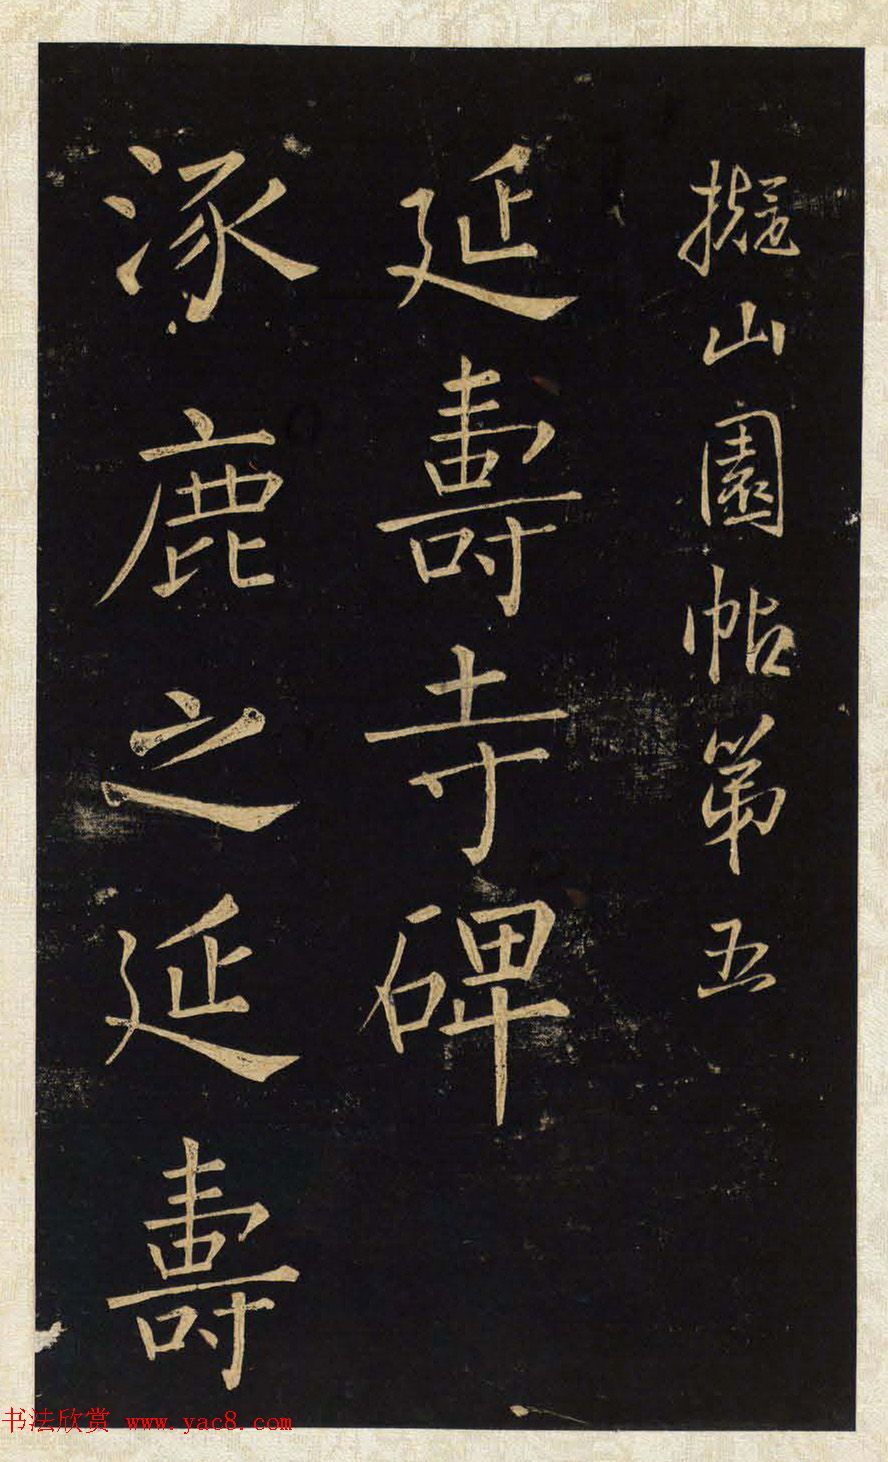 擬山園帖第五
延壽寺碑
涿鹿之延壽
书法欣赏 www.yac8.com